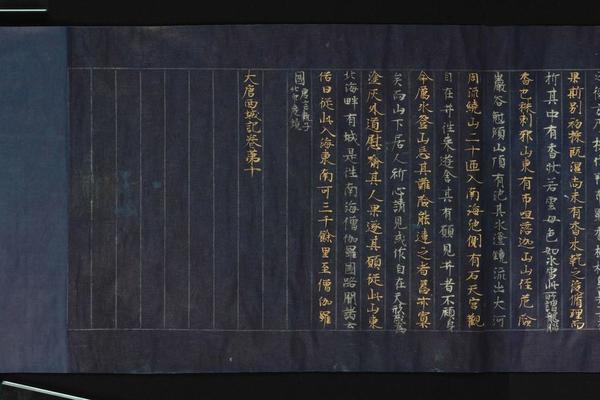 果斯別初採既濕尚未有香木乾之後循理而
析其中有香狀若雲母色如氷雪此所謂龍腦
香也秣剌耶山東有布呾落迦山山徃危險
巖谷敧傾山頂有池其水澄鏡流出大河
周流繞山二十匝入南海池側有石天宮觀
自在𦬇往来遊舍其有願見𦬇者不顧身
命厲水登山忘其艱險能達之者盖亦寡
矣而山下居人祈心請見或作自在天形或為
塗灰外道慰喻其人果遂其願従此山東
北海畔有城是往南海僧伽羅國路聞諸土
俗曰従此入海東南可三千餘里至僧伽羅
國 唐言執師子非印度之境
大唐西域記卷第十